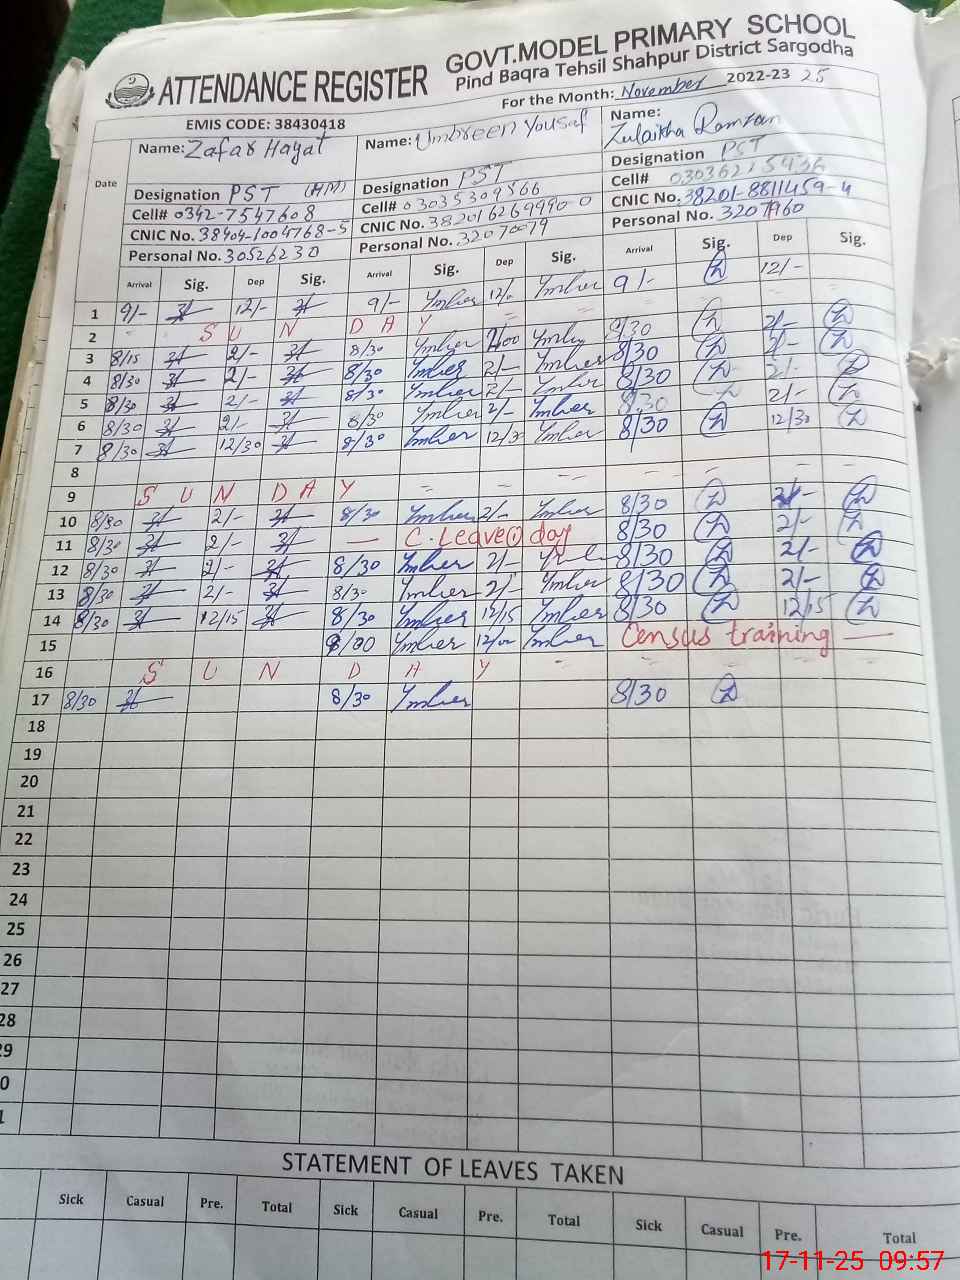 GOVT.MODEL PRIMARY SCHOOL
ATTENDANCE REGISTER Pind Baqra Tehsil Shahpur District Sargodha
For the Month: November 2022-23 25
EMIS CODE: 38430418
Date
Name: Zafar Hayat
Designation PST (HM)
Cell# 0342-7547608
CNIC No. 38404-1004768-5
Personal No. 30526230
Name: Umbreen Yousaf
Designation PST
Cell# 03035309866
CNIC No. 382016269990-0
Personal No. 32070079
Name: Zulaikha Ramzan
Designation PST
Cell#
CNIC No. 38201-8811459-4
Personal No.
Arrival Sig. Dep Sig. Arrival Sig. Dep Sig. Arrival Sig. Dep Sig.
1 9/- 12/- 9/- 12/- 9/- 12/-
2 SUNDAY
3 8/15 2/- 8/30 2/00 8/30 2/-
4 8/30 2/- 8/30 2/- 8/30 2/-
5 8/30 2/- 8/30 2/- 8/30 2/-
6 8/30 2/- 8/30 2/- 8/30 2/-
7 8/30 12/30 8/30 12/30 8/30 12/30
8
9 SUNDAY
10 8/30 2/- 8/30 2/- 8/30 2/-
11 8/30 2/- — C. Leave (1) day 8/30 2/-
12 8/30 2/- 8/30 2/- 8/30 2/-
13 8/30 2/- 8/30 2/- 8/30 2/-
14 8/30 12/15 8/30 12/15 8/30 12/15
15 8/30 12/00 Census training —
16 SUNDAY
17 8/30 8/30 8/30
18
19
20
21
22
23
24
25
26
27
28
29
0
1
STATEMENT OF LEAVES TAKEN
Sick Casual Pre. Total Sick Casual Pre. Total Sick Casual Pre. Total
17-11-25 09:57